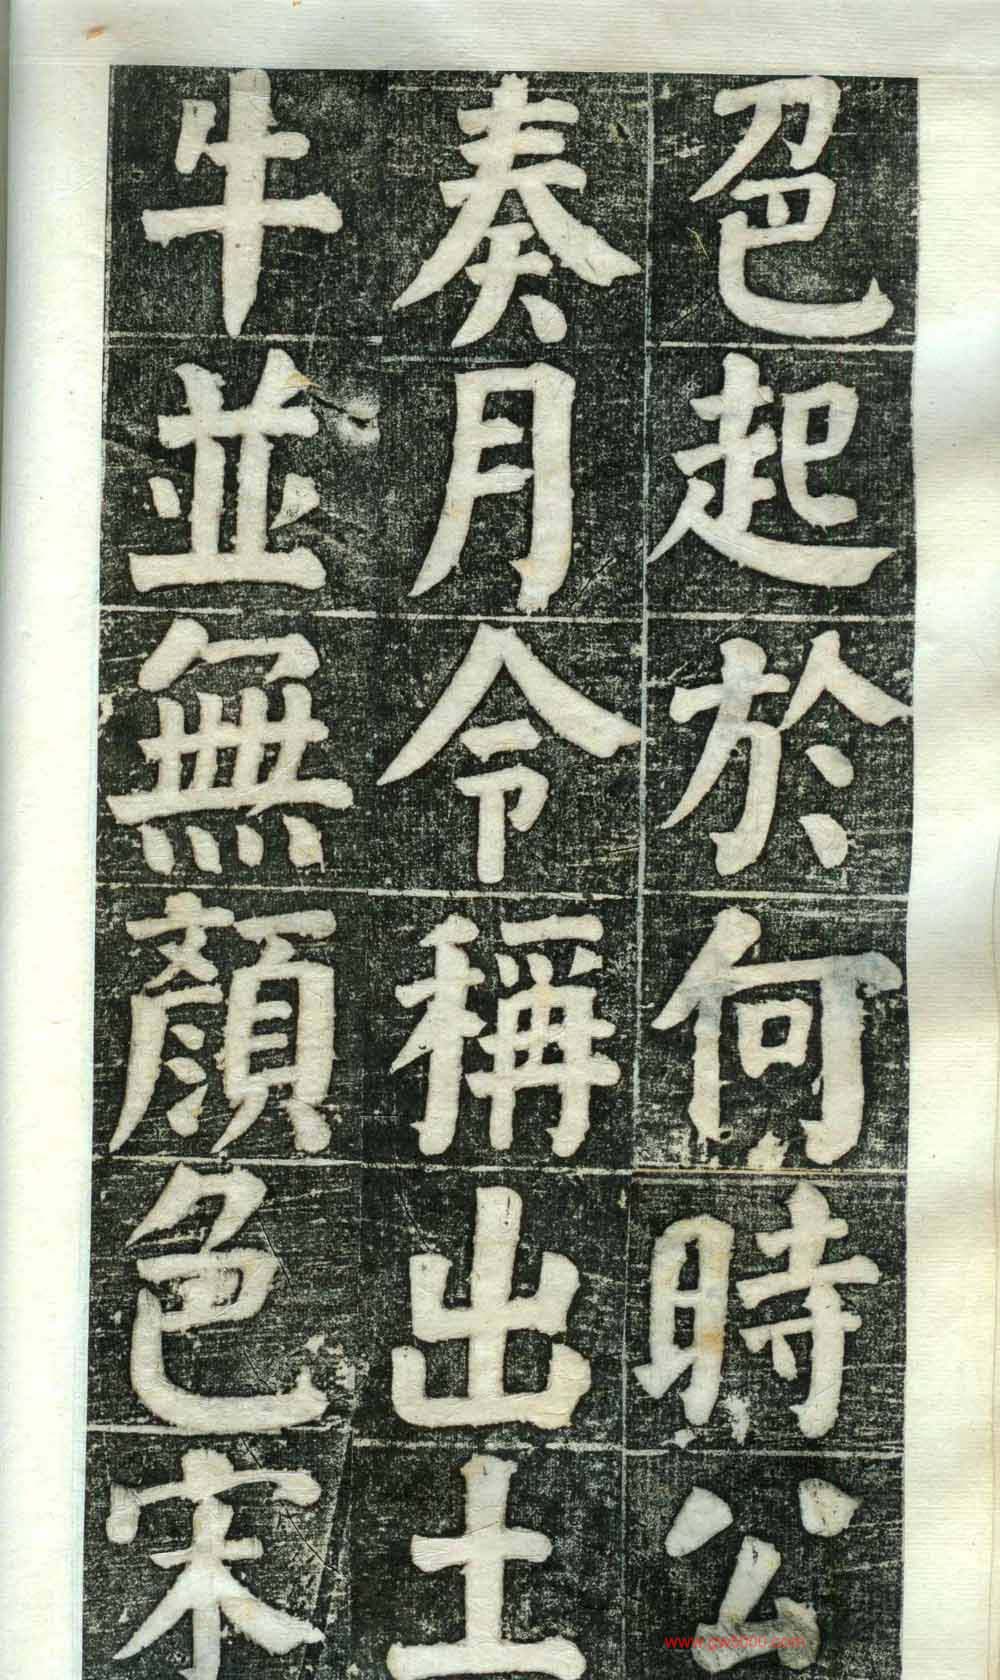 色起於何時公
奏月令稱出土
牛並無顏色宋